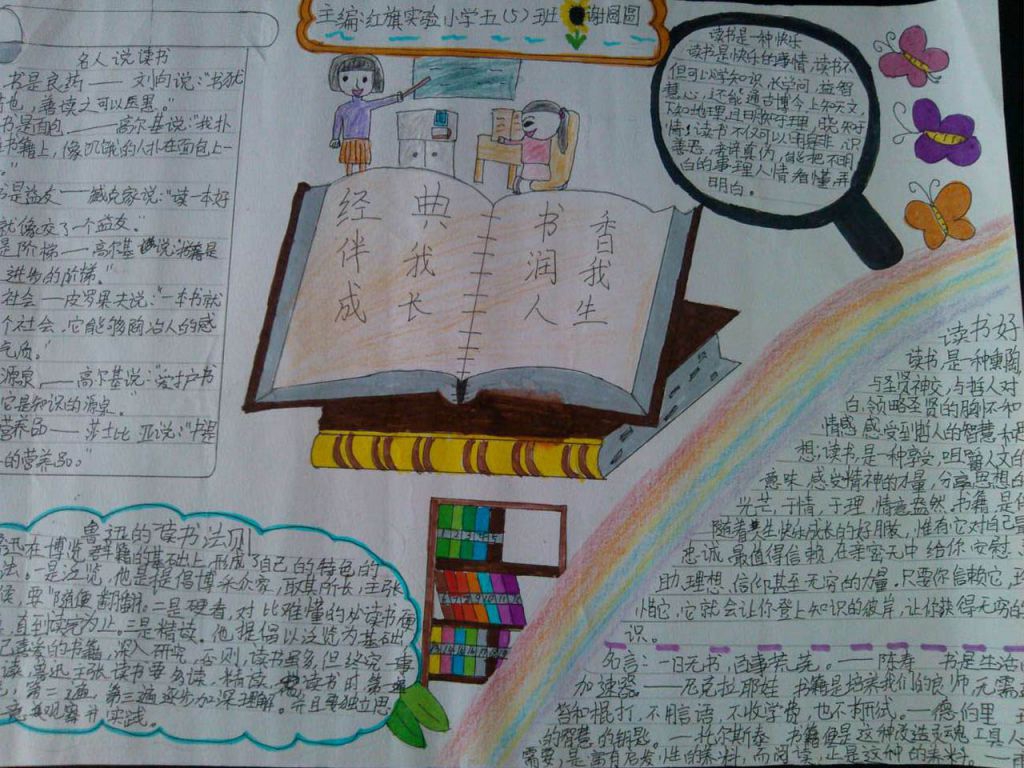 主编:红旗实验小学五(5)班 谢圆圆
名人说读书
书是良药——刘向说:"书犹
也,善读之可以医愚。"
书是面包——高尔基说:"我扑
书籍上,像饥饿的人扑在面包上一
"
是益友——臧克家说:"读一本好
就像交了一个益友。
是阶梯——高尔基说:书籍是
进步的阶梯."
社会——皮罗果夫说:"一本书就
个社会,它能够陶冶人的感
气质。"
源泉——高尔基说:"爱护书
它是知识的源泉。"
营养品——莎士比亚说:"书是
的营养品。"
经典
伴我
成长
书香
润我
人生
读书是一种快乐
读书是快乐的事情,读书不
但可以学知识,长学问,益智
慧心,还能通古博今,上知天文,
下知地理,且明
情!读书不仅可以明辨是非,识
善恶,考评真伪,能把不明
白的事理人情看懂弄
明白。
读书好
读书,是一种熏陶
与圣贤神交,与哲人对
白,领略圣贤的胸
情感,感受到哲人的智慧
想;读书,是一种享受,咀嚼人文的
意味,感觉精神的力量,分享思想的
光芒,于情,于理,情意盎然,书籍,是
随着 生快乐成长的好朋友,惟有它对自己
忠诚,最值得信赖,在亲密无中给你安慰、
助,理想,信仰甚至无穷的力量,只要你信赖它,
它,它就会让你登上知识的彼岸,让你获得无穷的
识。
名言:一日无书,百事荒芜。——陈寿 书是生活
加速器。——尼克拉耶娃 书籍是培养我们的良师,无需
笞和棍打,不用言语,不收学费,也不拘形式。——德伯里
的智慧的钥匙。——托尔斯泰 书籍便是这种改造灵魂工具人
需要,是富有启发性的养料。而阅读,正是这种的养料。——
鲁迅的读书法则
迅在博览群籍的基础上,形成了自己的特色的
法。一是泛览,他是提倡博采众家,取其所长,主张
后,要"随便翻翻。二是硬看,对比难懂的必读书
,直到读完为止。三是精读,他提倡以泛览为基础
己喜爱的书籍,深入研究,否则,读书虽多,但终究一事
读,鲁迅主张读书要多读,精读,读书时第一
第二遍、第三遍逐步加深理解。并且要独立思
观察并实践。